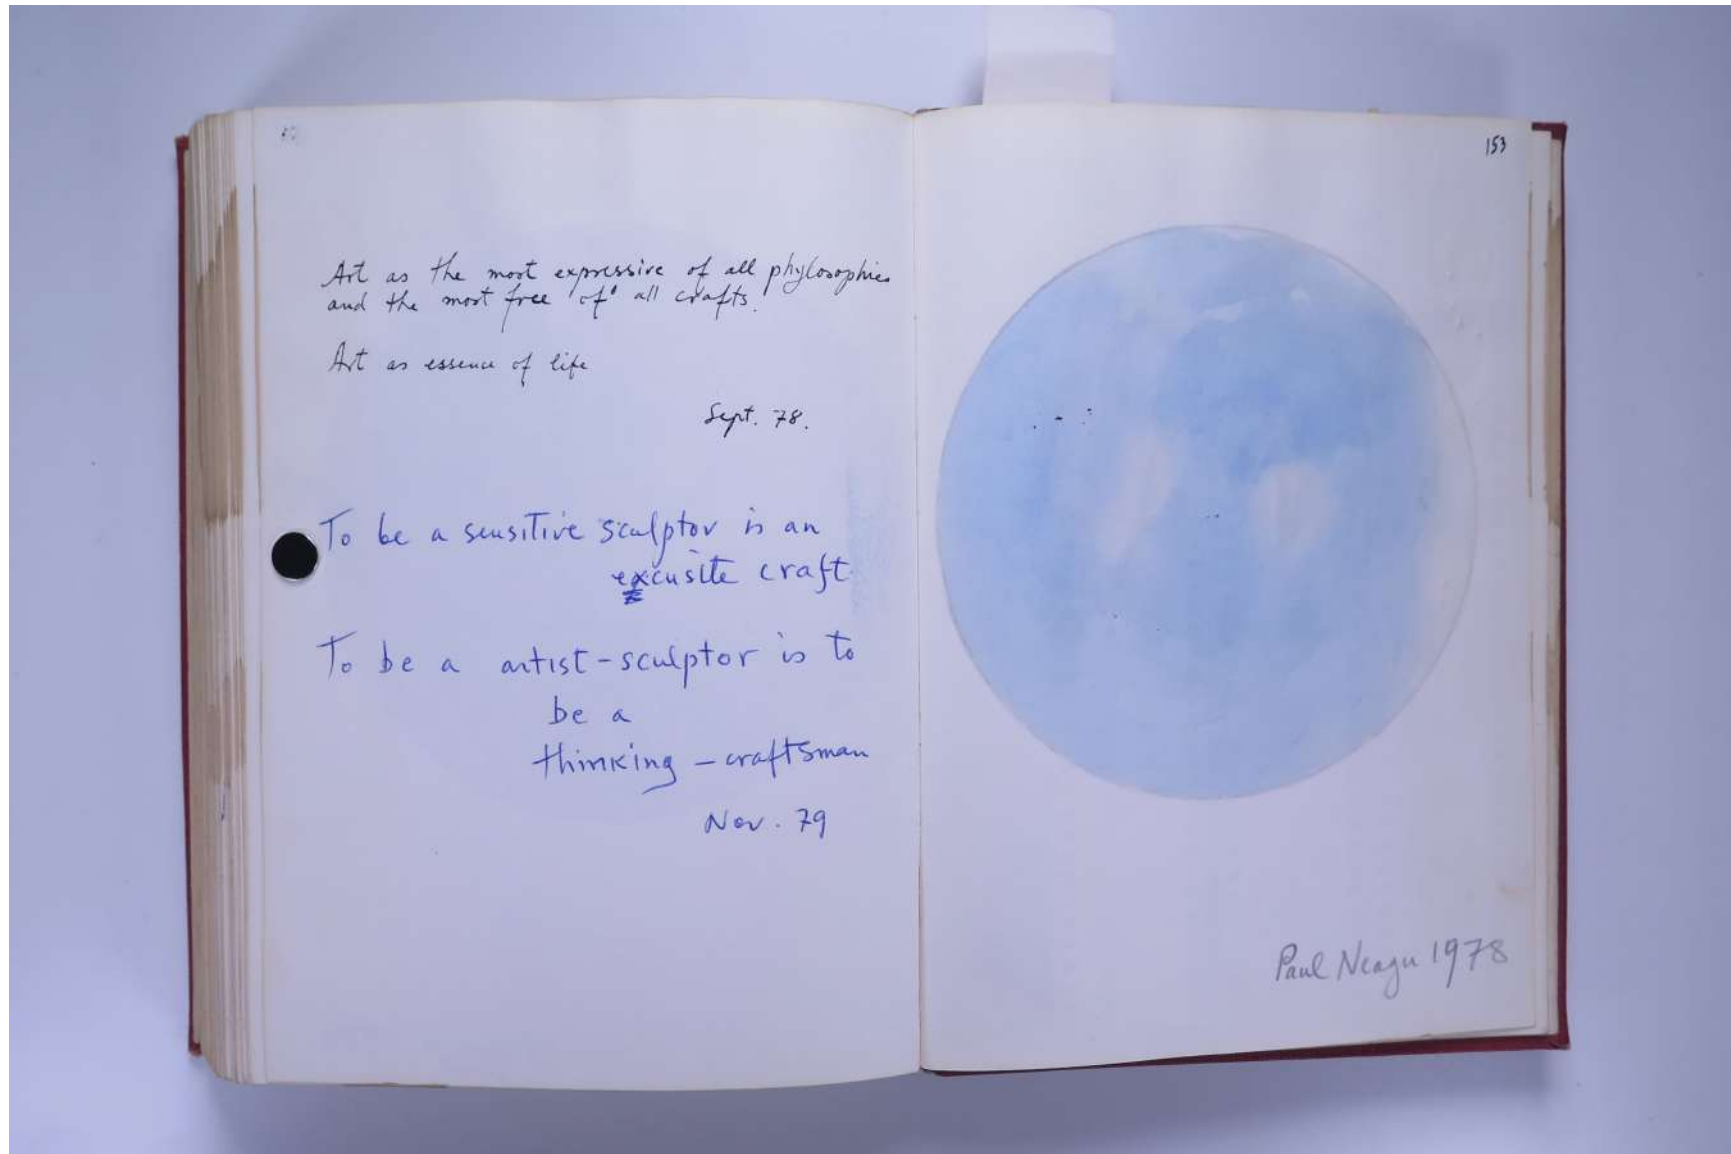 Art as the most expressive of all phylosophies
and the most free of all crafts.
Art as essence of life
Sept. 78.
To be a sensitive sculptor is an
excusite craft
To be a artist-sculptor is to
be a
thinking - craftsman
Nov. 79
153
Paul Neagu 1978